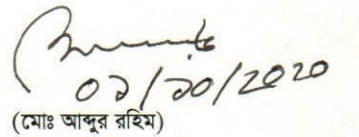 ০১/১০/২০২০
(মোঃ আব্দুর রহিম)